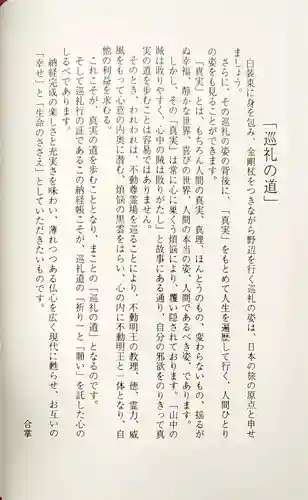 「巡礼の道」
白装束に身を包み、金剛杖をつきながら野辺を行く巡礼の姿は、日本の旅の原点と申せ
ましょう。
さらに、その巡礼の姿の背後に、「真実」をもとめて人生を遍歴して行く、人間ひとり
の姿をも見ることができます。
「真実」とは、もちろん人間の真実、真理、ほんとうのもの、変わらないもの、揺るが
ぬ幸福、静かな世界、喜びの世界、人間の本当の姿、人間であるべき姿、であります。
しかし、その「真実」は常に心に巣くう煩悩により、覆い隠されております。「山中の
賊は敗りやすく、心中の賊は敗りがたし」と故事にある通り、自分の邪欲をのりきって真
実の道を歩むことは容易ではありません。
そのとき、われわれは、不動尊霊場を巡ることにより、不動明王の教理、徳、霊力、威
風をもって心意の内奥に潜む、煩悩の黒雲をはらい、心の内に不動明王と一体となり、自
他の利益を求むる。
これこそが、真実の道を歩むこととなり、まことの「巡礼の道」となるのです。
そして巡礼行の証であるこの納経帳こそが、巡礼道の「祈り」と「願い」を託した心の
しるべであります。
納経完成の楽しさと充実さを味わい、薄れつつある仏心を広く現代に甦らせ、お互いの
「幸せ」と「生命のささえ」としていただきたいものです。
合掌